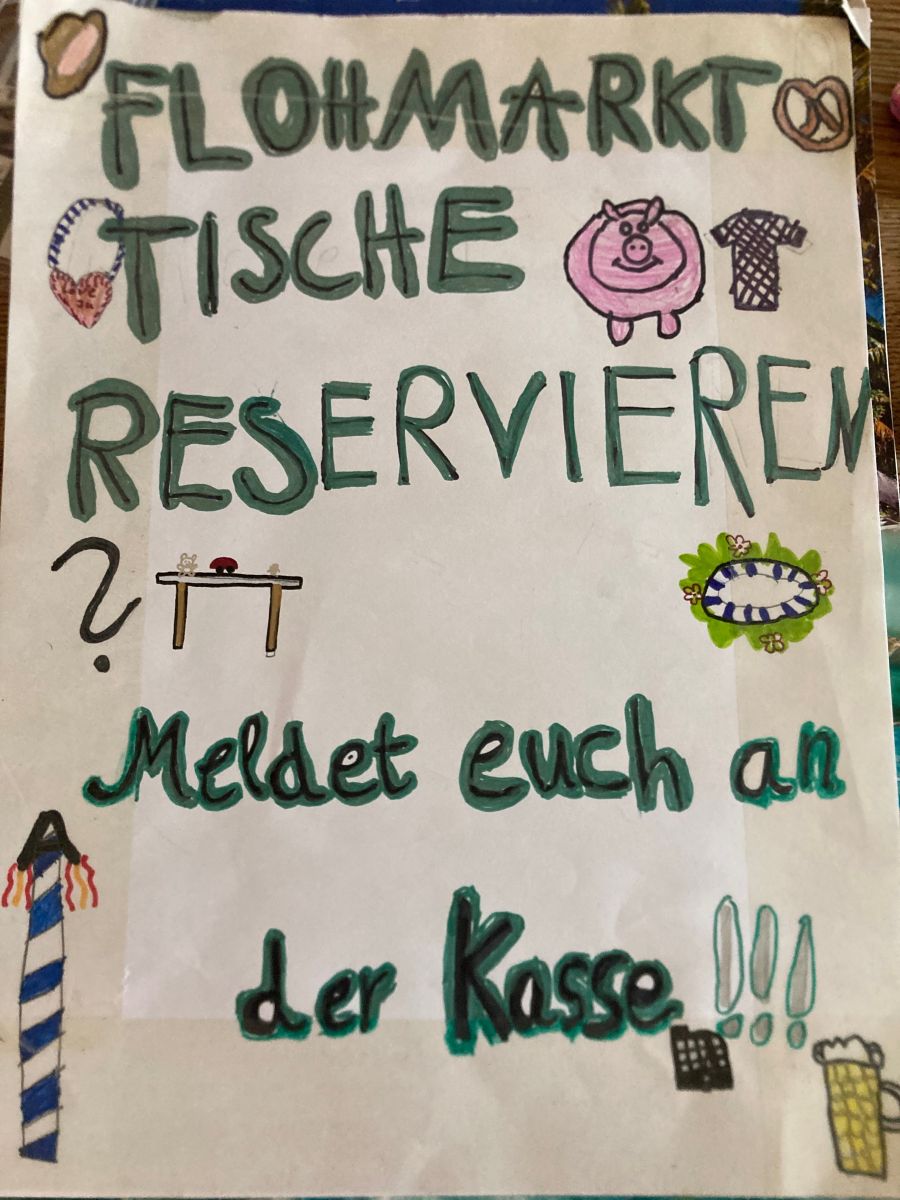 FLOHMARKT
TISCHE
RESERVIEREN
?
Meldet euch an
der Kasse !!!